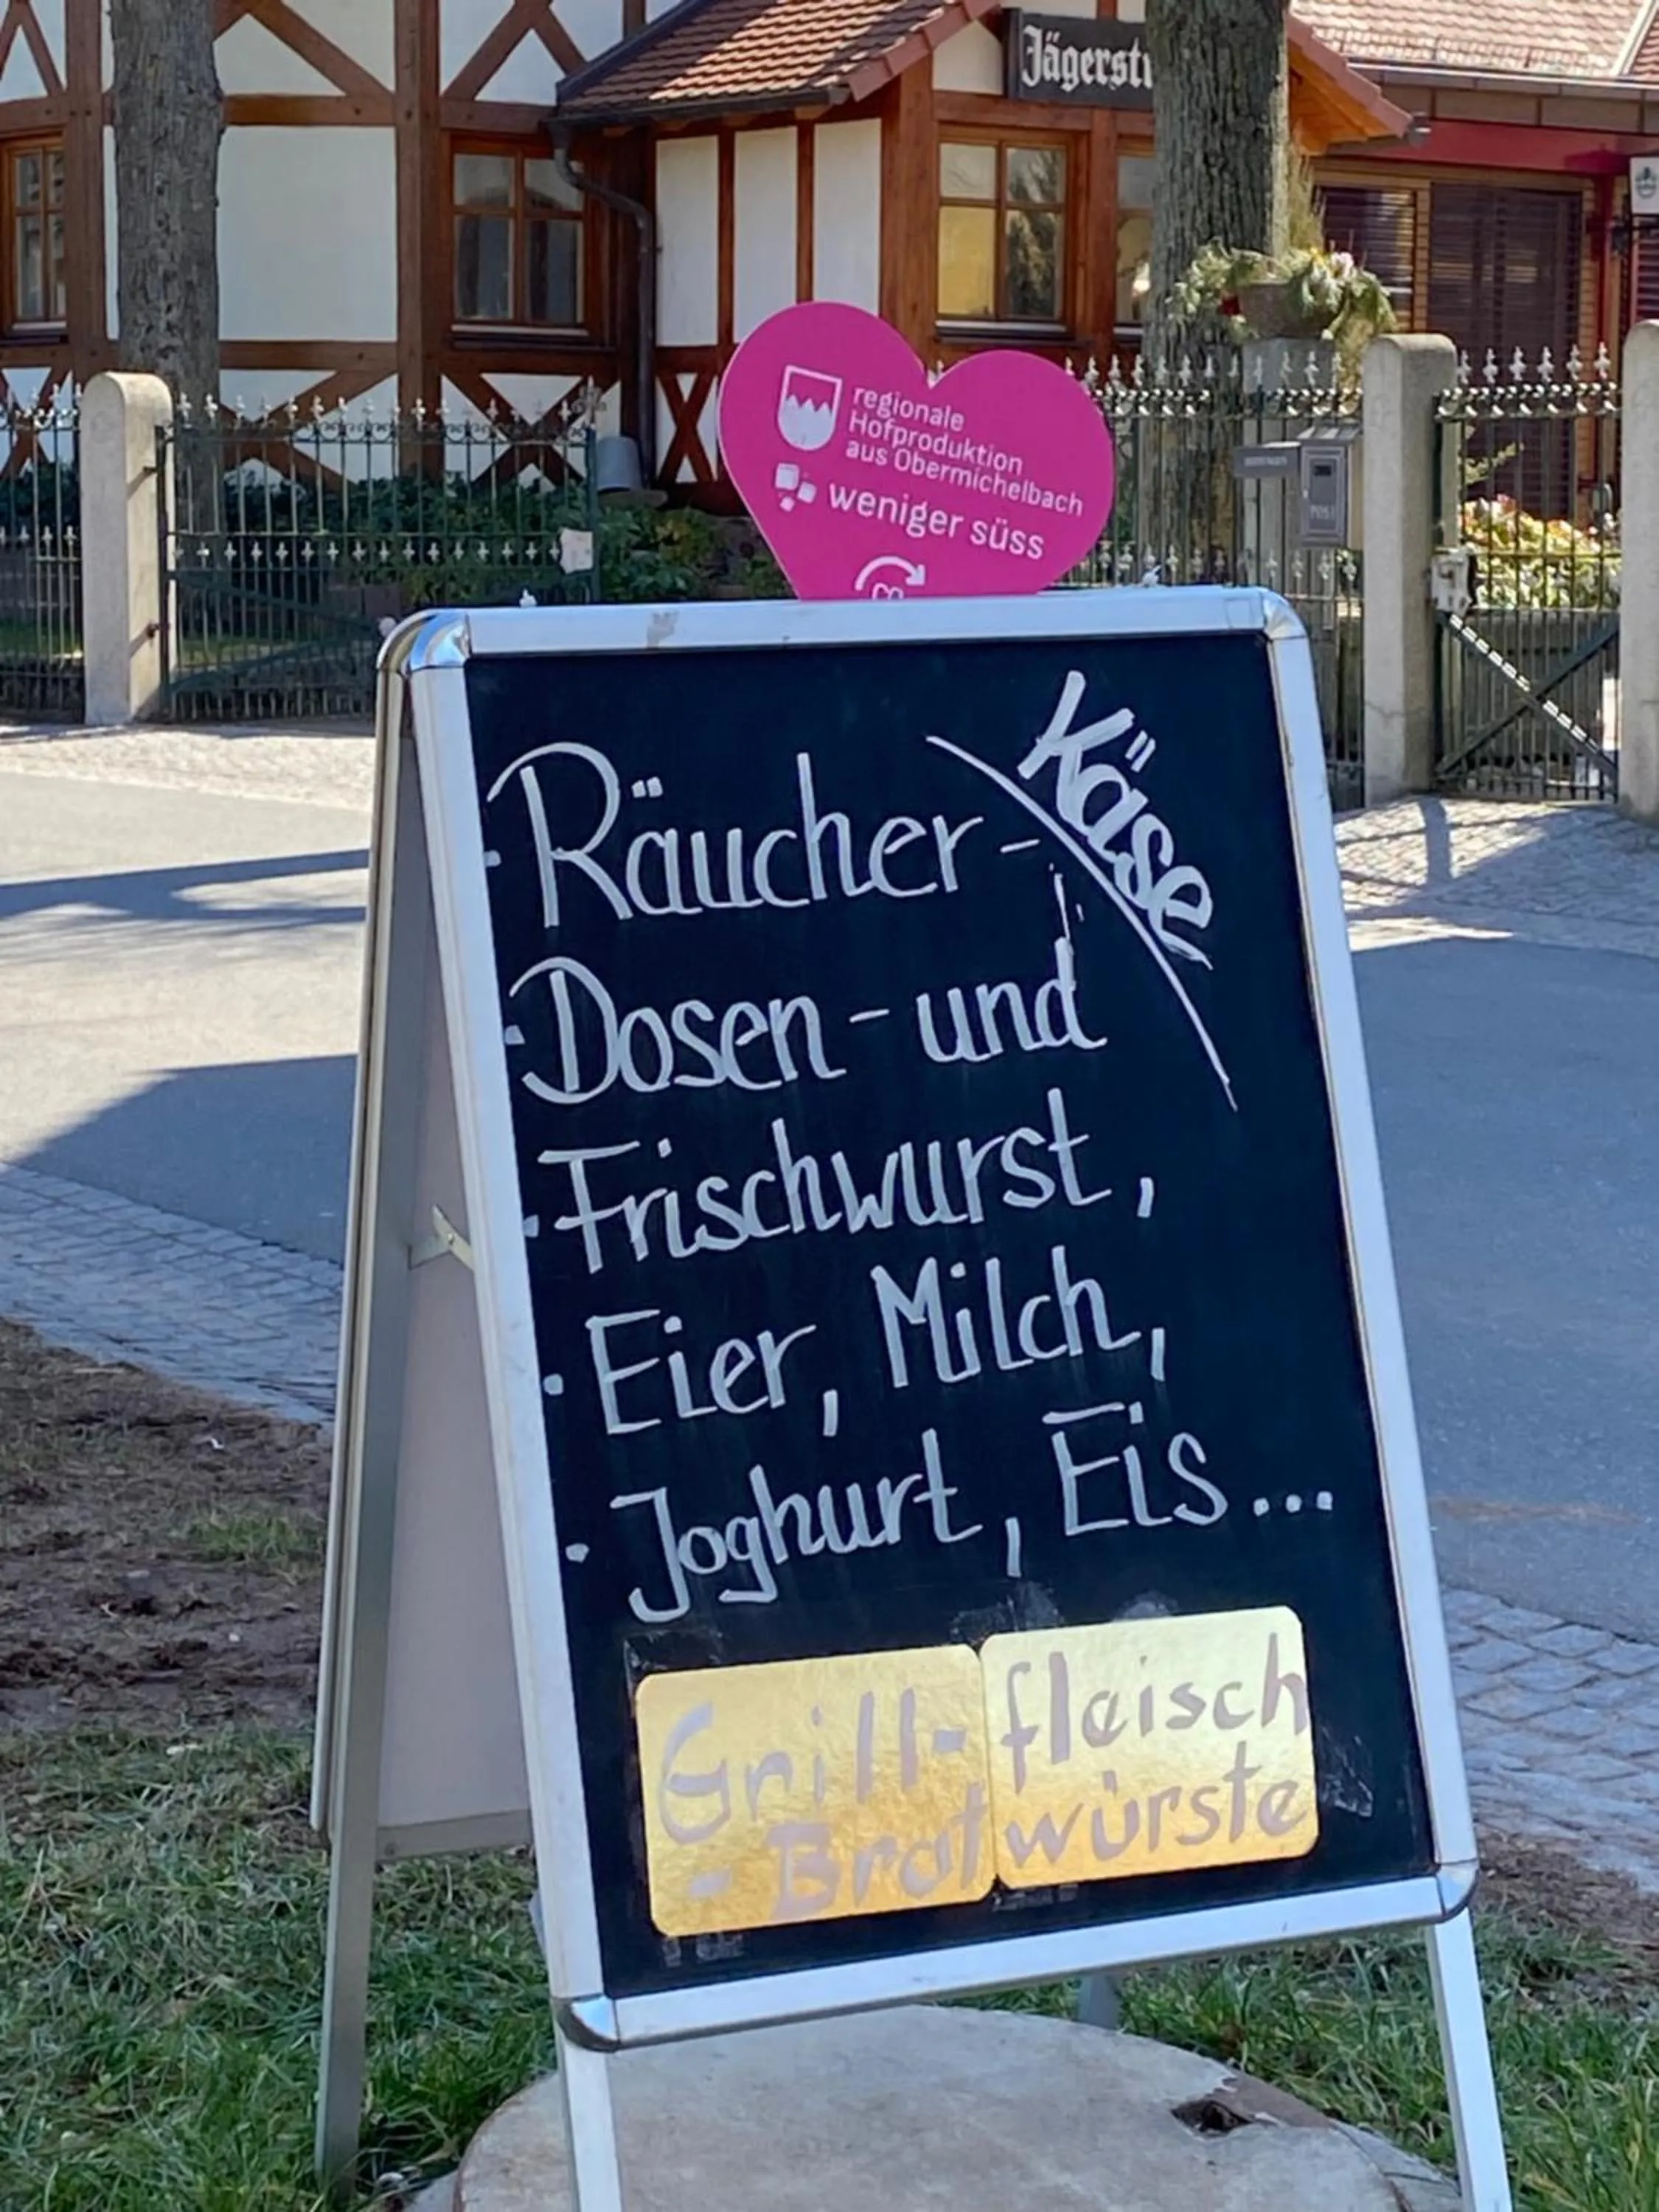 Jägerst
regionale
Hofproduktion
aus Obermichelbach
weniger süss
CO
Käse
· Räucher-
· Dosen- und
· Frischwurst,
· Eier, Milch,
· Joghurt, Eis...
Grill-fleisch
- Bratwürste
POST